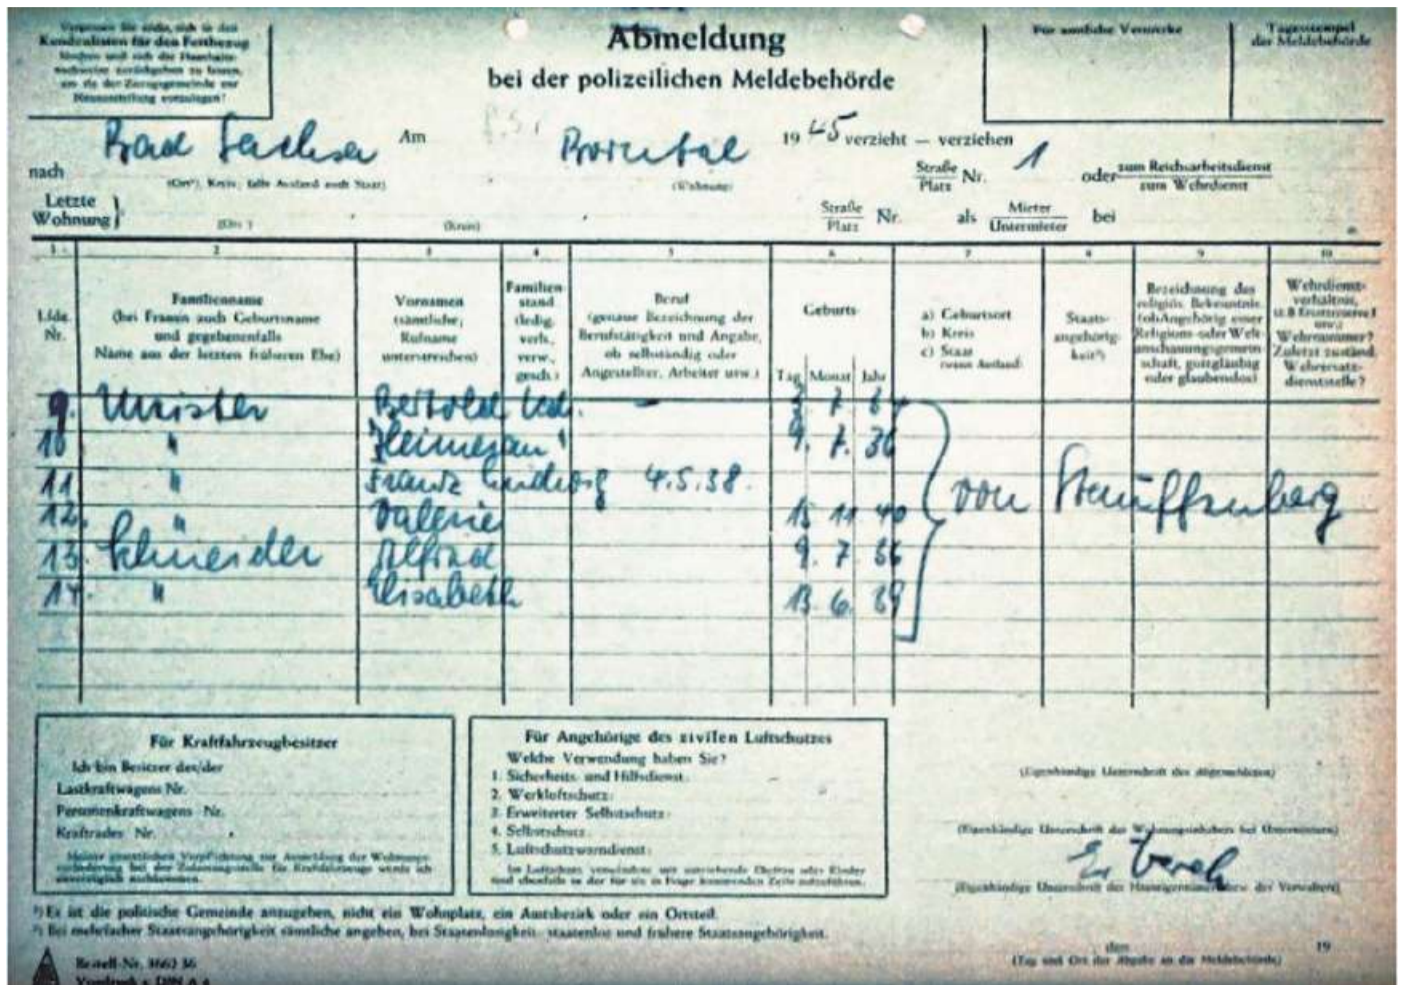 Vergessen Sie nicht, sich in den
Kundenlisten für den Fettbezug
löschen und sich die Haushalts-
nachweise zurückgeben zu lassen,
um sie der Zuzugsgemeinde zur
Neuausstellung vorzulegen!
Abmeldung
bei der polizeilichen Meldebehörde
Für amtliche Vermerke
Tagesstempel
der Meldebehörde
Am 1945 verzieht — verziehen
nach Bad Sachsa Borntal Straße Platz Nr. 1 oder zum Reichsarbeitsdienst zum Wehrdienst
(Ort¹), Kreis, falls Ausland auch Staat) (Wohnung)
Letzte
Wohnung Straße Platz Nr. als Mieter Untermieter bei
(Ort¹) (Kreis)
1 2 3 4 5 6 7 8 9 10
Lfde.
Nr.
Familienname
(bei Frauen auch Geburtsname
und gegebenenfalls
Name aus der letzten früheren Ehe)
Vornamen
(sämtliche;
Rufname
unterstreichen)
Familien-
stand
(ledig,
verh.,
verw.,
gesch.)
Beruf
(genaue Bezeichnung der
Berufstätigkeit und Angabe,
ob selbständig oder
Angestellter, Arbeiter usw.)
Geburts-
Tag Monat Jahr
a) Geburtsort
b) Kreis
c) Staat
(wenn Ausland)
Staats-
angehörig-
keit²)
Bezeichnung des
religiös. Bekenntnis.
(ob Angehörig. einer
Religions- oder Welt-
anschauungsgemein-
schaft, gottgläubig
oder glaubenslos)
Wehrdienst-
verhältnis,
(z. B. Ersatzreserve I
usw.)
Wehrnummer?
Zuletzt zuständ.
Wehrersatz-
dienststelle?
9. Meister Bertold led. - 3. 7. 34
10 " Heimeran " 9. 7. 36
11 " Franz Ludwig 4.5.38.
von Stauffenberg
12. " Valerie 15 11 40
13. Schneider Alfred 9. 7. 36
14. " Elisabeth 13. 6. 39
Für Kraftfahrzeugbesitzer
Ich bin Besitzer des/der
Lastkraftwagens Nr.
Personenkraftwagens Nr.
Kraftrades Nr.
Für Angehörige des zivilen Luftschutzes
Welche Verwendung haben Sie?
1. Sicherheits- und Hilfsdienst:
2. Werkluftschutz:
3. Erweiterter Selbstschutz:
4. Selbstschutz:
5. Luftschutzwarndienst:
(Eigenhändige Unterschrift des Abgemeldeten)
(Eigenhändige Unterschrift des Wohnungsinhabers bei Untermietern)
(Eigenhändige Unterschrift des Hauseigentümers bzw. des Verwalters)
¹) Es ist die politische Gemeinde anzugeben, nicht ein Wohnplatz, ein Amtsbezirk oder ein Ortsteil.
²) Bei mehrfacher Staatsangehörigkeit sämtliche angeben, bei Staatenlosigkeit: staatenlos und frühere Staatsangehörigkeit.
den 19
(Tag und Ort der Abgabe an die Meldebehörde)
Bestell-Nr. 3662 36
Vordruck